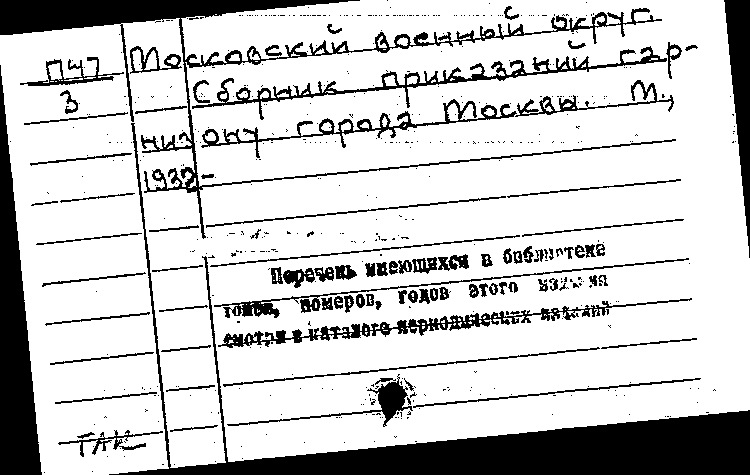 П47 Московский военный округ.
3 Сборник приказаний гар-
низону города Москвы. М.,
1932-
Перечень имеющихся в библиотеке
томов, номеров, годов этого издания
смотри в каталоге периодических изданий
ГАК